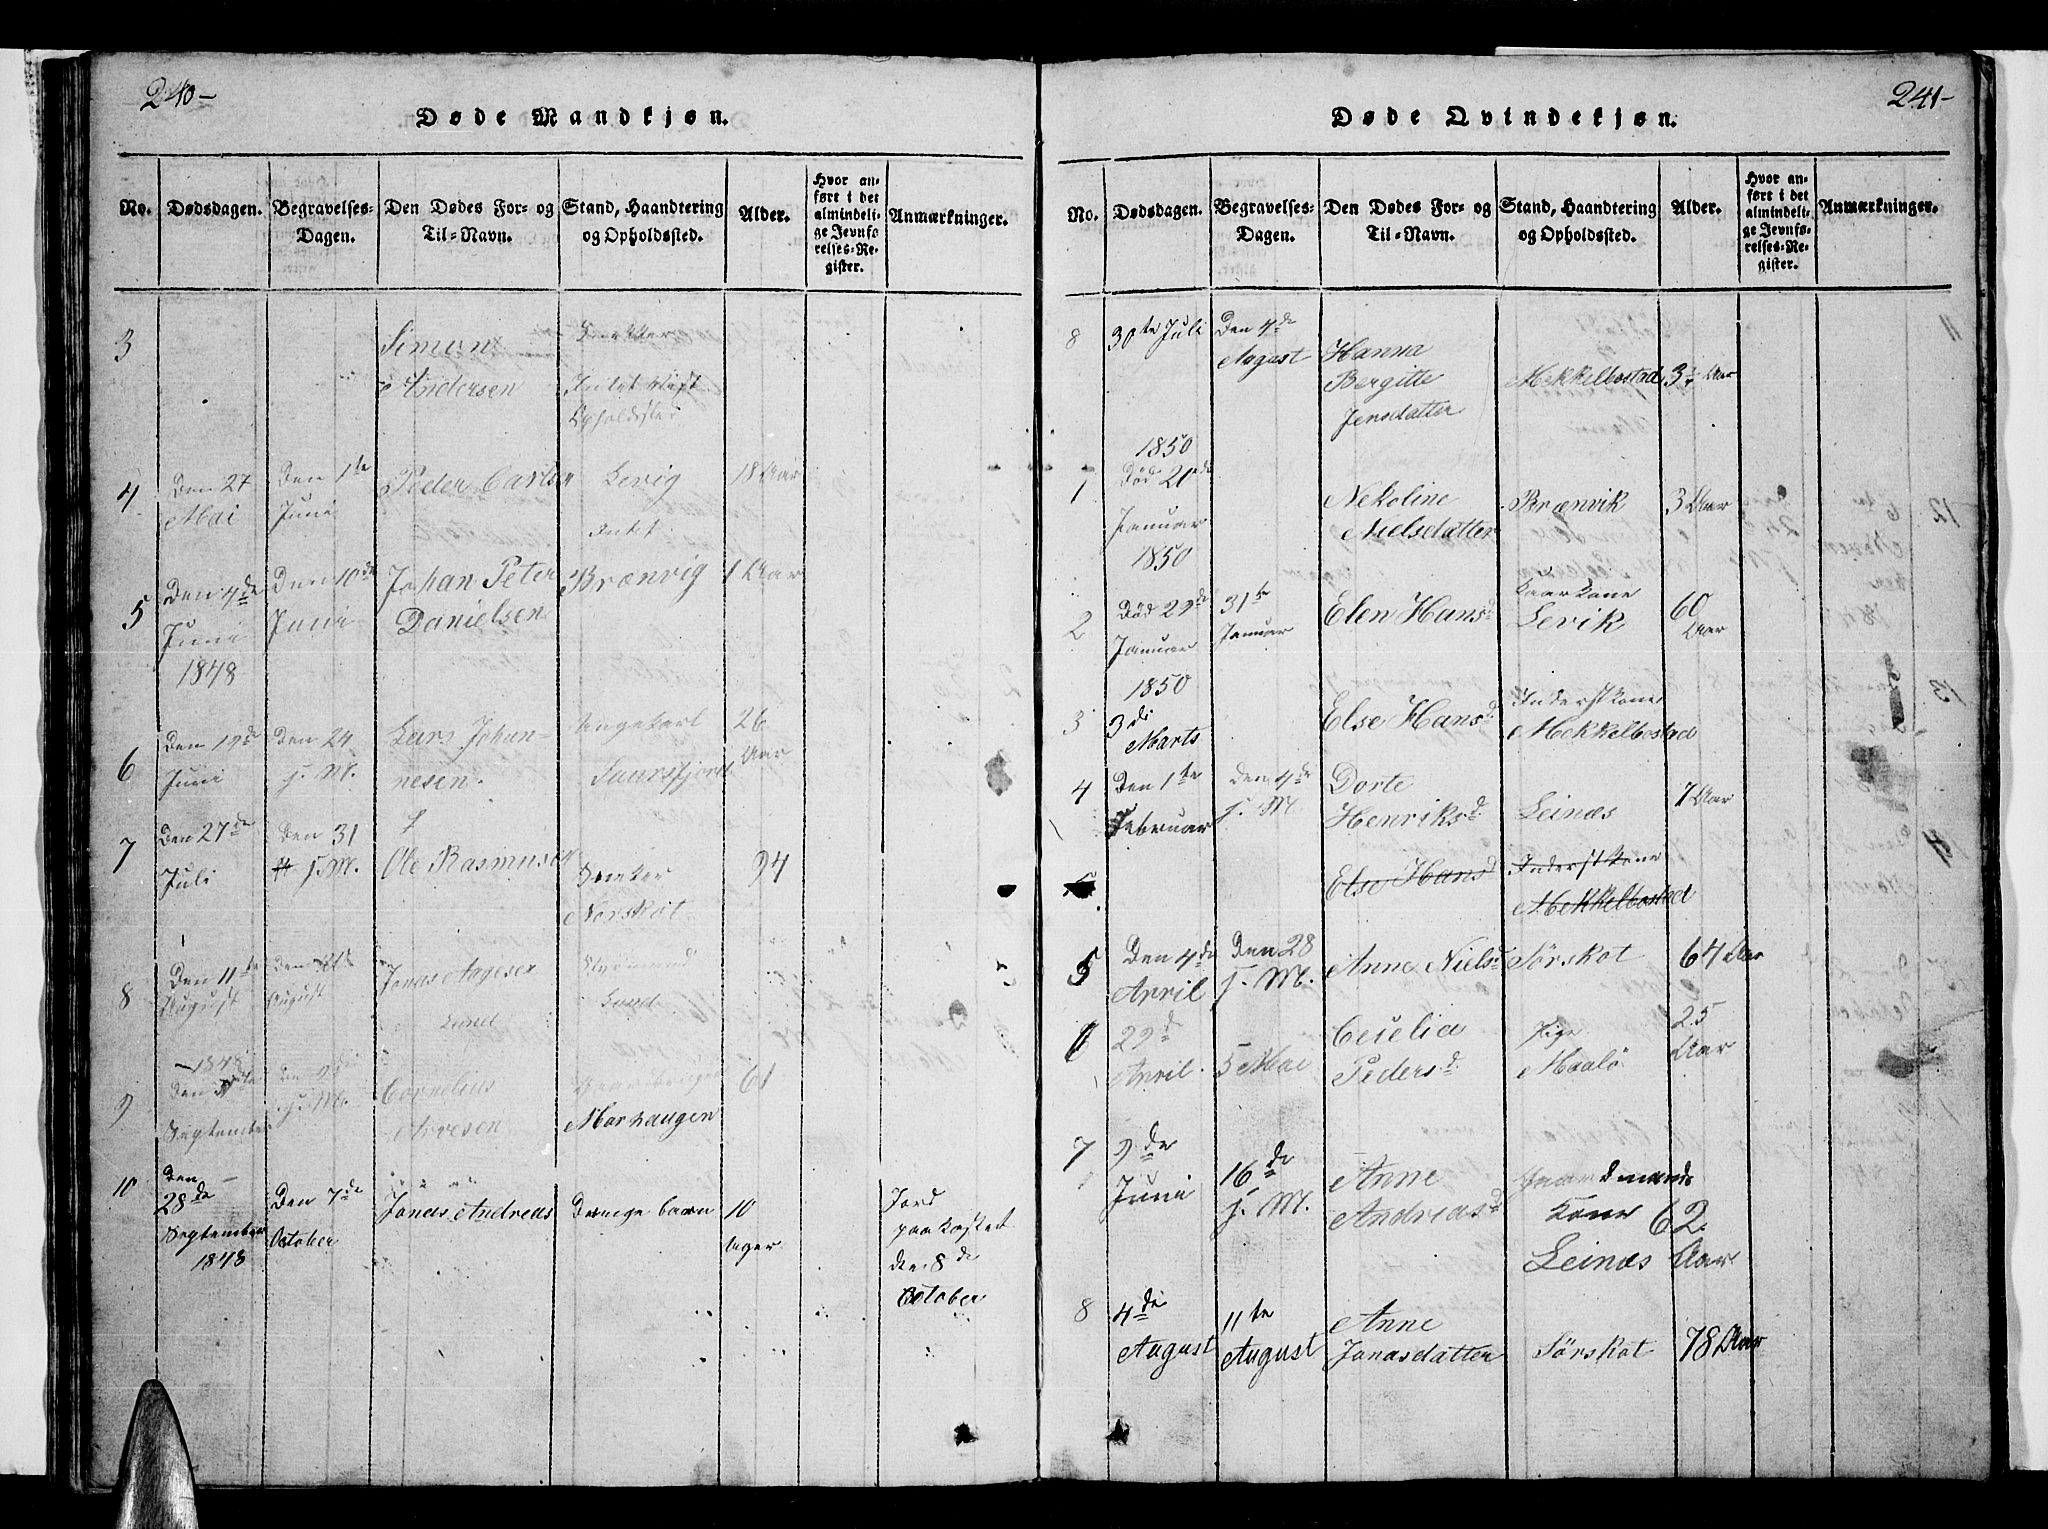 240-
Døde Mandkjøn.
No.
Dødsdagen.
Begravelses-
Dagen.
Den Dødes For- og
Til-Navn.
Stand, Haandtering
og Opholdssted.
Alder.
Hvor an-
ført i det
almindeli-
ge Jevnfø-
relses-Re-
gister.
Anmærkninger.
3
Simon
Andersen
Intet vist
Opholdsted
4
Den 27
Mai
Den 1te
Juni
Peder Carlsen
Levig
Intet
18 Aar
5
Den 4de
Juni
1848
Den 10de
Juni
Johan Peter
Danielsen
Brænvig
1 Aar
6
Den 19de
Juni
Den 24
j. M.
Lars Johan-
nesen.
Ungekarl
Saursfjord
26
Aar
7
Den 27de
Juli
Den 31
j. M.
Ole Rasmusen
Norskot
94
8
Den 11te
August
August
Jonas Aagesen
Lund
Lund
9
1848
September
j. M.
Cornelius
Arvesen
Morhaugen
61
10
Den
28de
September
1848
Den 7de
October
Jonas Andreas
Drenge barn
10
Uger
Jord
paakastet
den 8de
October
241-
Døde Qvindekjøn.
No.
Dødsdagen.
Begravelses-
Dagen.
Den Dødes For- og
Til-Navn.
Stand, Haandtering
og Opholdssted.
Alder.
Hvor an-
ført i det
almindeli-
ge Jevnfø-
relses-Re-
gister.
Anmærkninger.
8
30te Juli
Den 4de
August
Hanna
Bergitte
Jensdatter
Mekkelbostad
Aar
1850
1
Død 20de
Januar
Nekoline
Nielsdatter
Brænvik
3 Aar
1850
2
Død 22de
Januar
31te
Januar
Elen Hansd
Kaarkone
Levik
60
Aar
1850
3
3di
Marts
Else Hansd
Inderstkone
Mekkelbostad
4
Den 1te
Februar
Den 4de
j. M.
Dorte
Henriksd
Leinæs
7 Aar
Else Hansd
Inderstkone
Mekkelbostad
5
Den 4de
April
Den 28
j. M.
Anne Nielsd
Sørskot
64 Aar
6
22d
April
5 Mai
Cecelia
Pedersd
Pige
Maalø
25
Aar
7
9de
Juni
16de
j. M.
Anne
Andreasd
Gaardmands
Kone
Leinæs
62
Aar
8
4de
August
11te
August
Anne
Jonasdatter
Sørskot
78 Aar